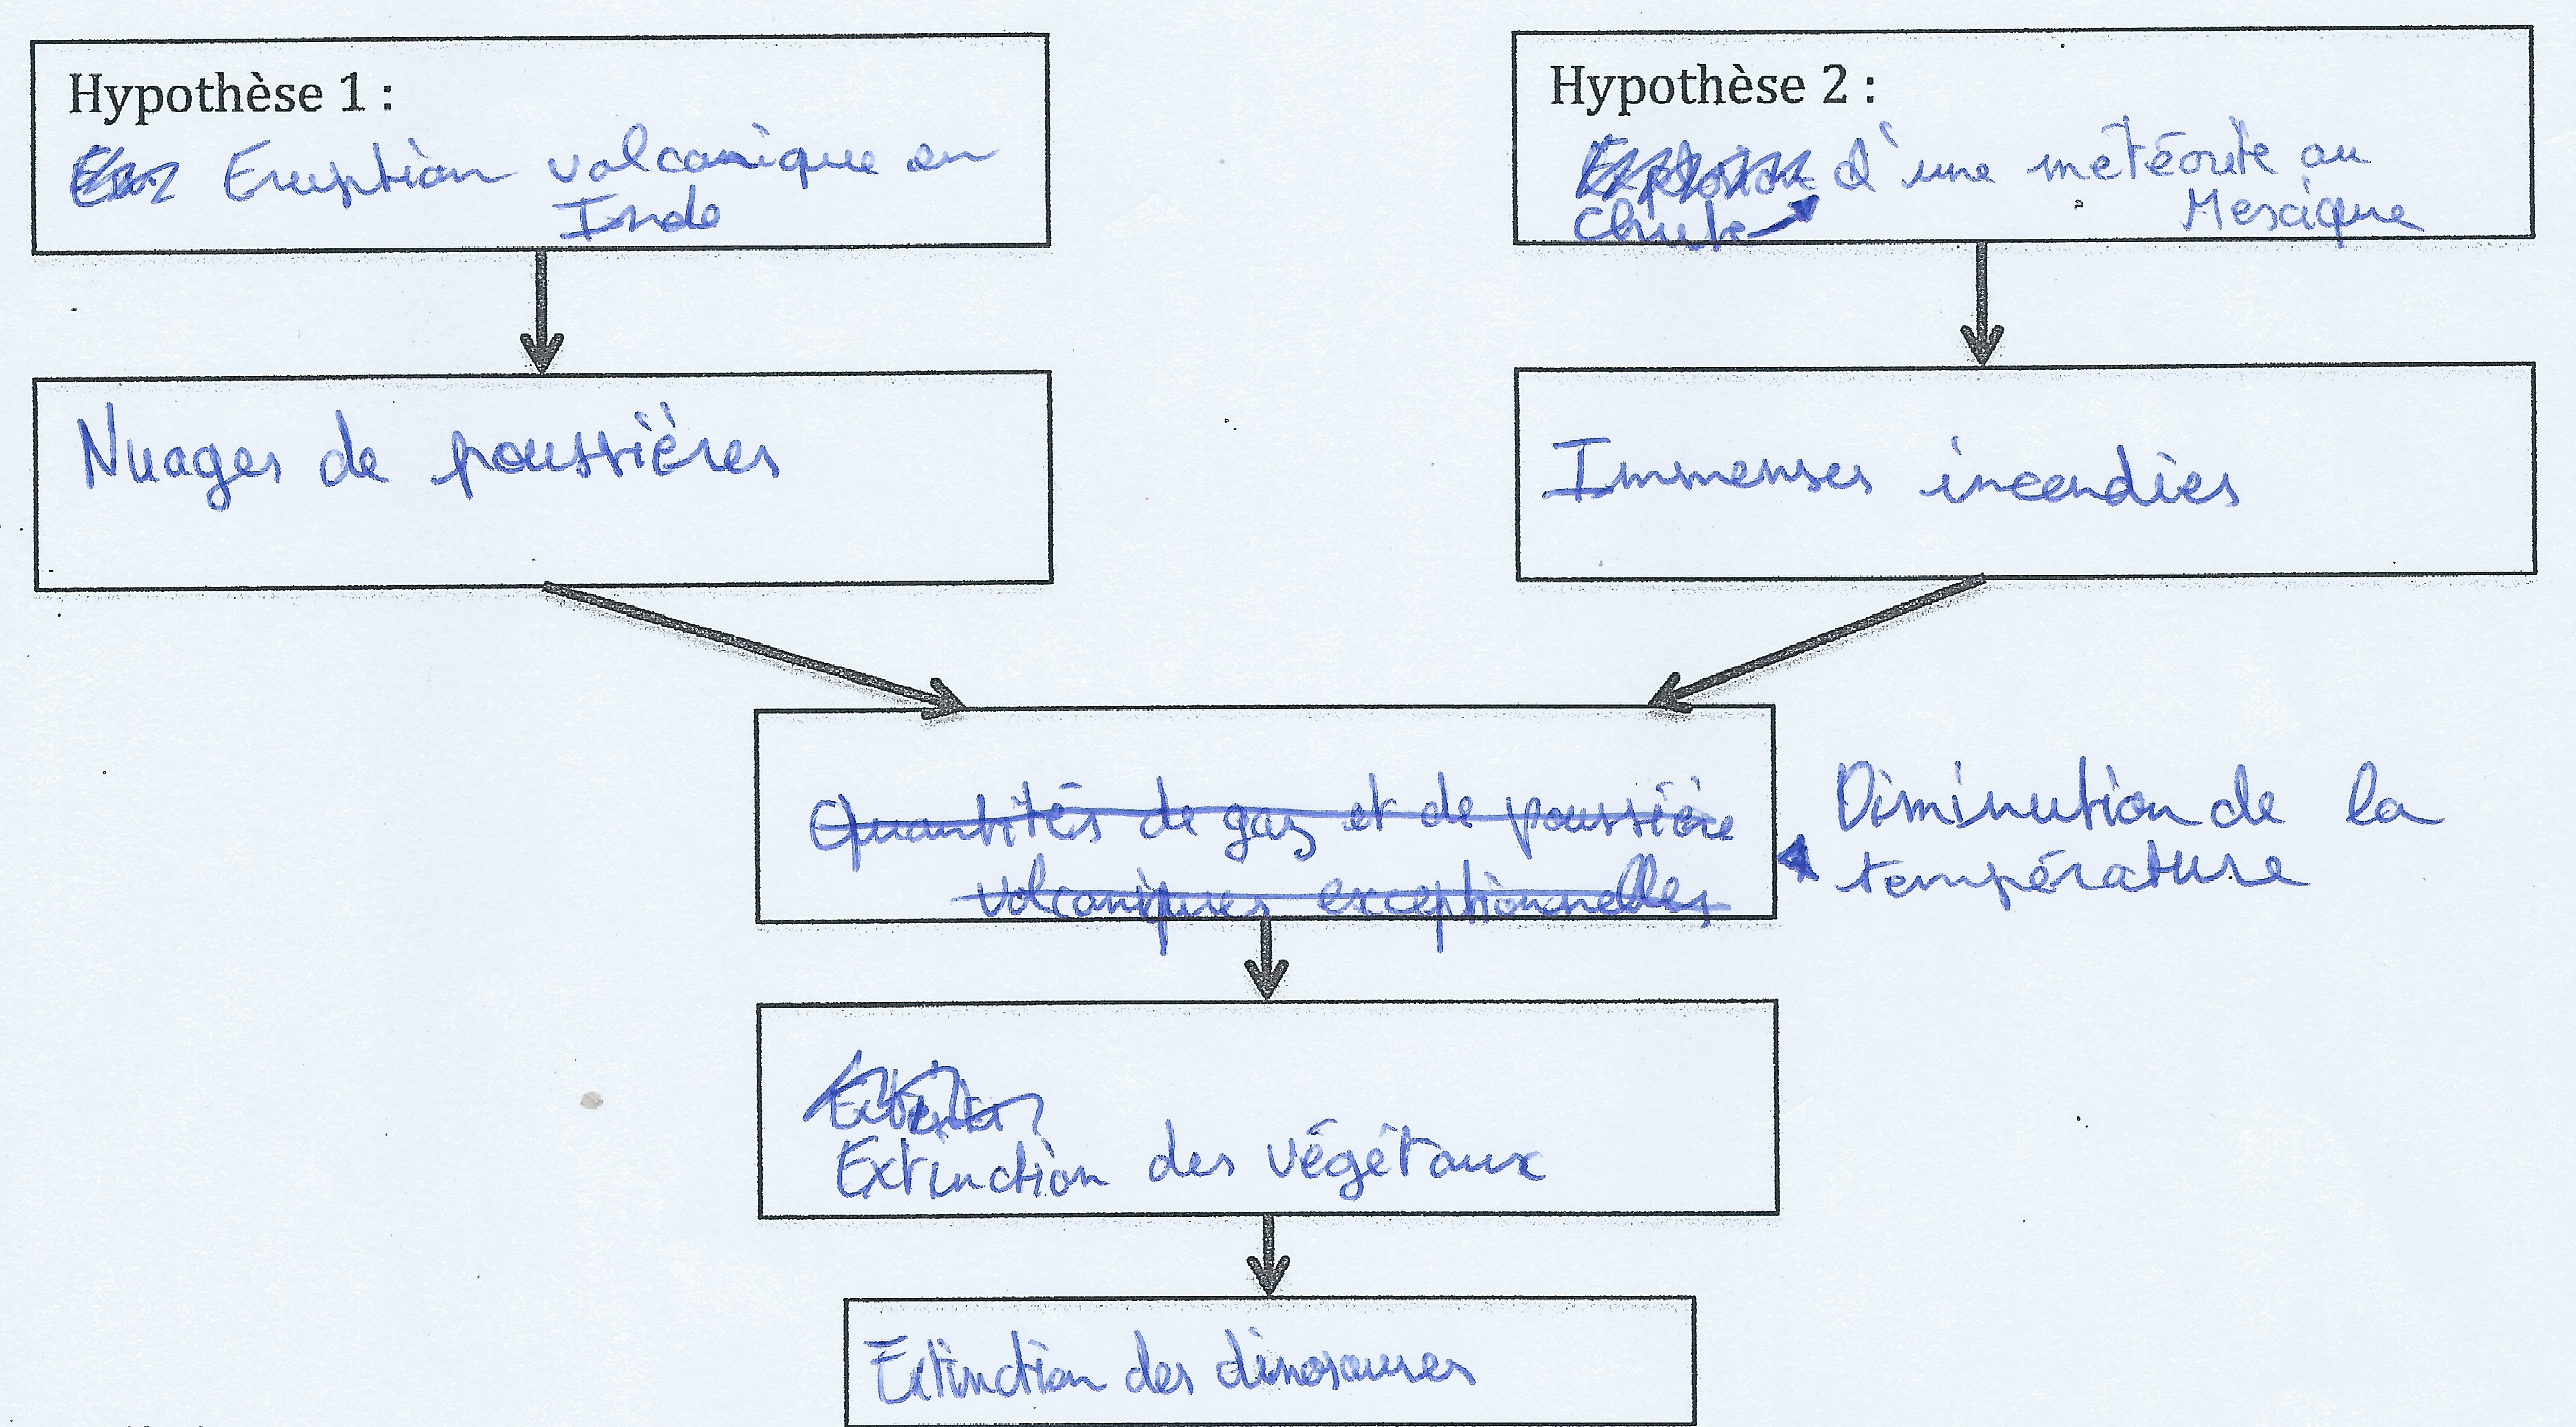 Hypothèse 1 :
Eruption volcanique en
Inde
Hypothèse 2 :
d'une météorite au
Chute Mexique
Nuages de poussières
Immenses incendies
Quantités de gaz et de poussière
volcaniques exceptionnelles
Diminution de la
température
Extinction des végétaux
Extinction des dinosaures